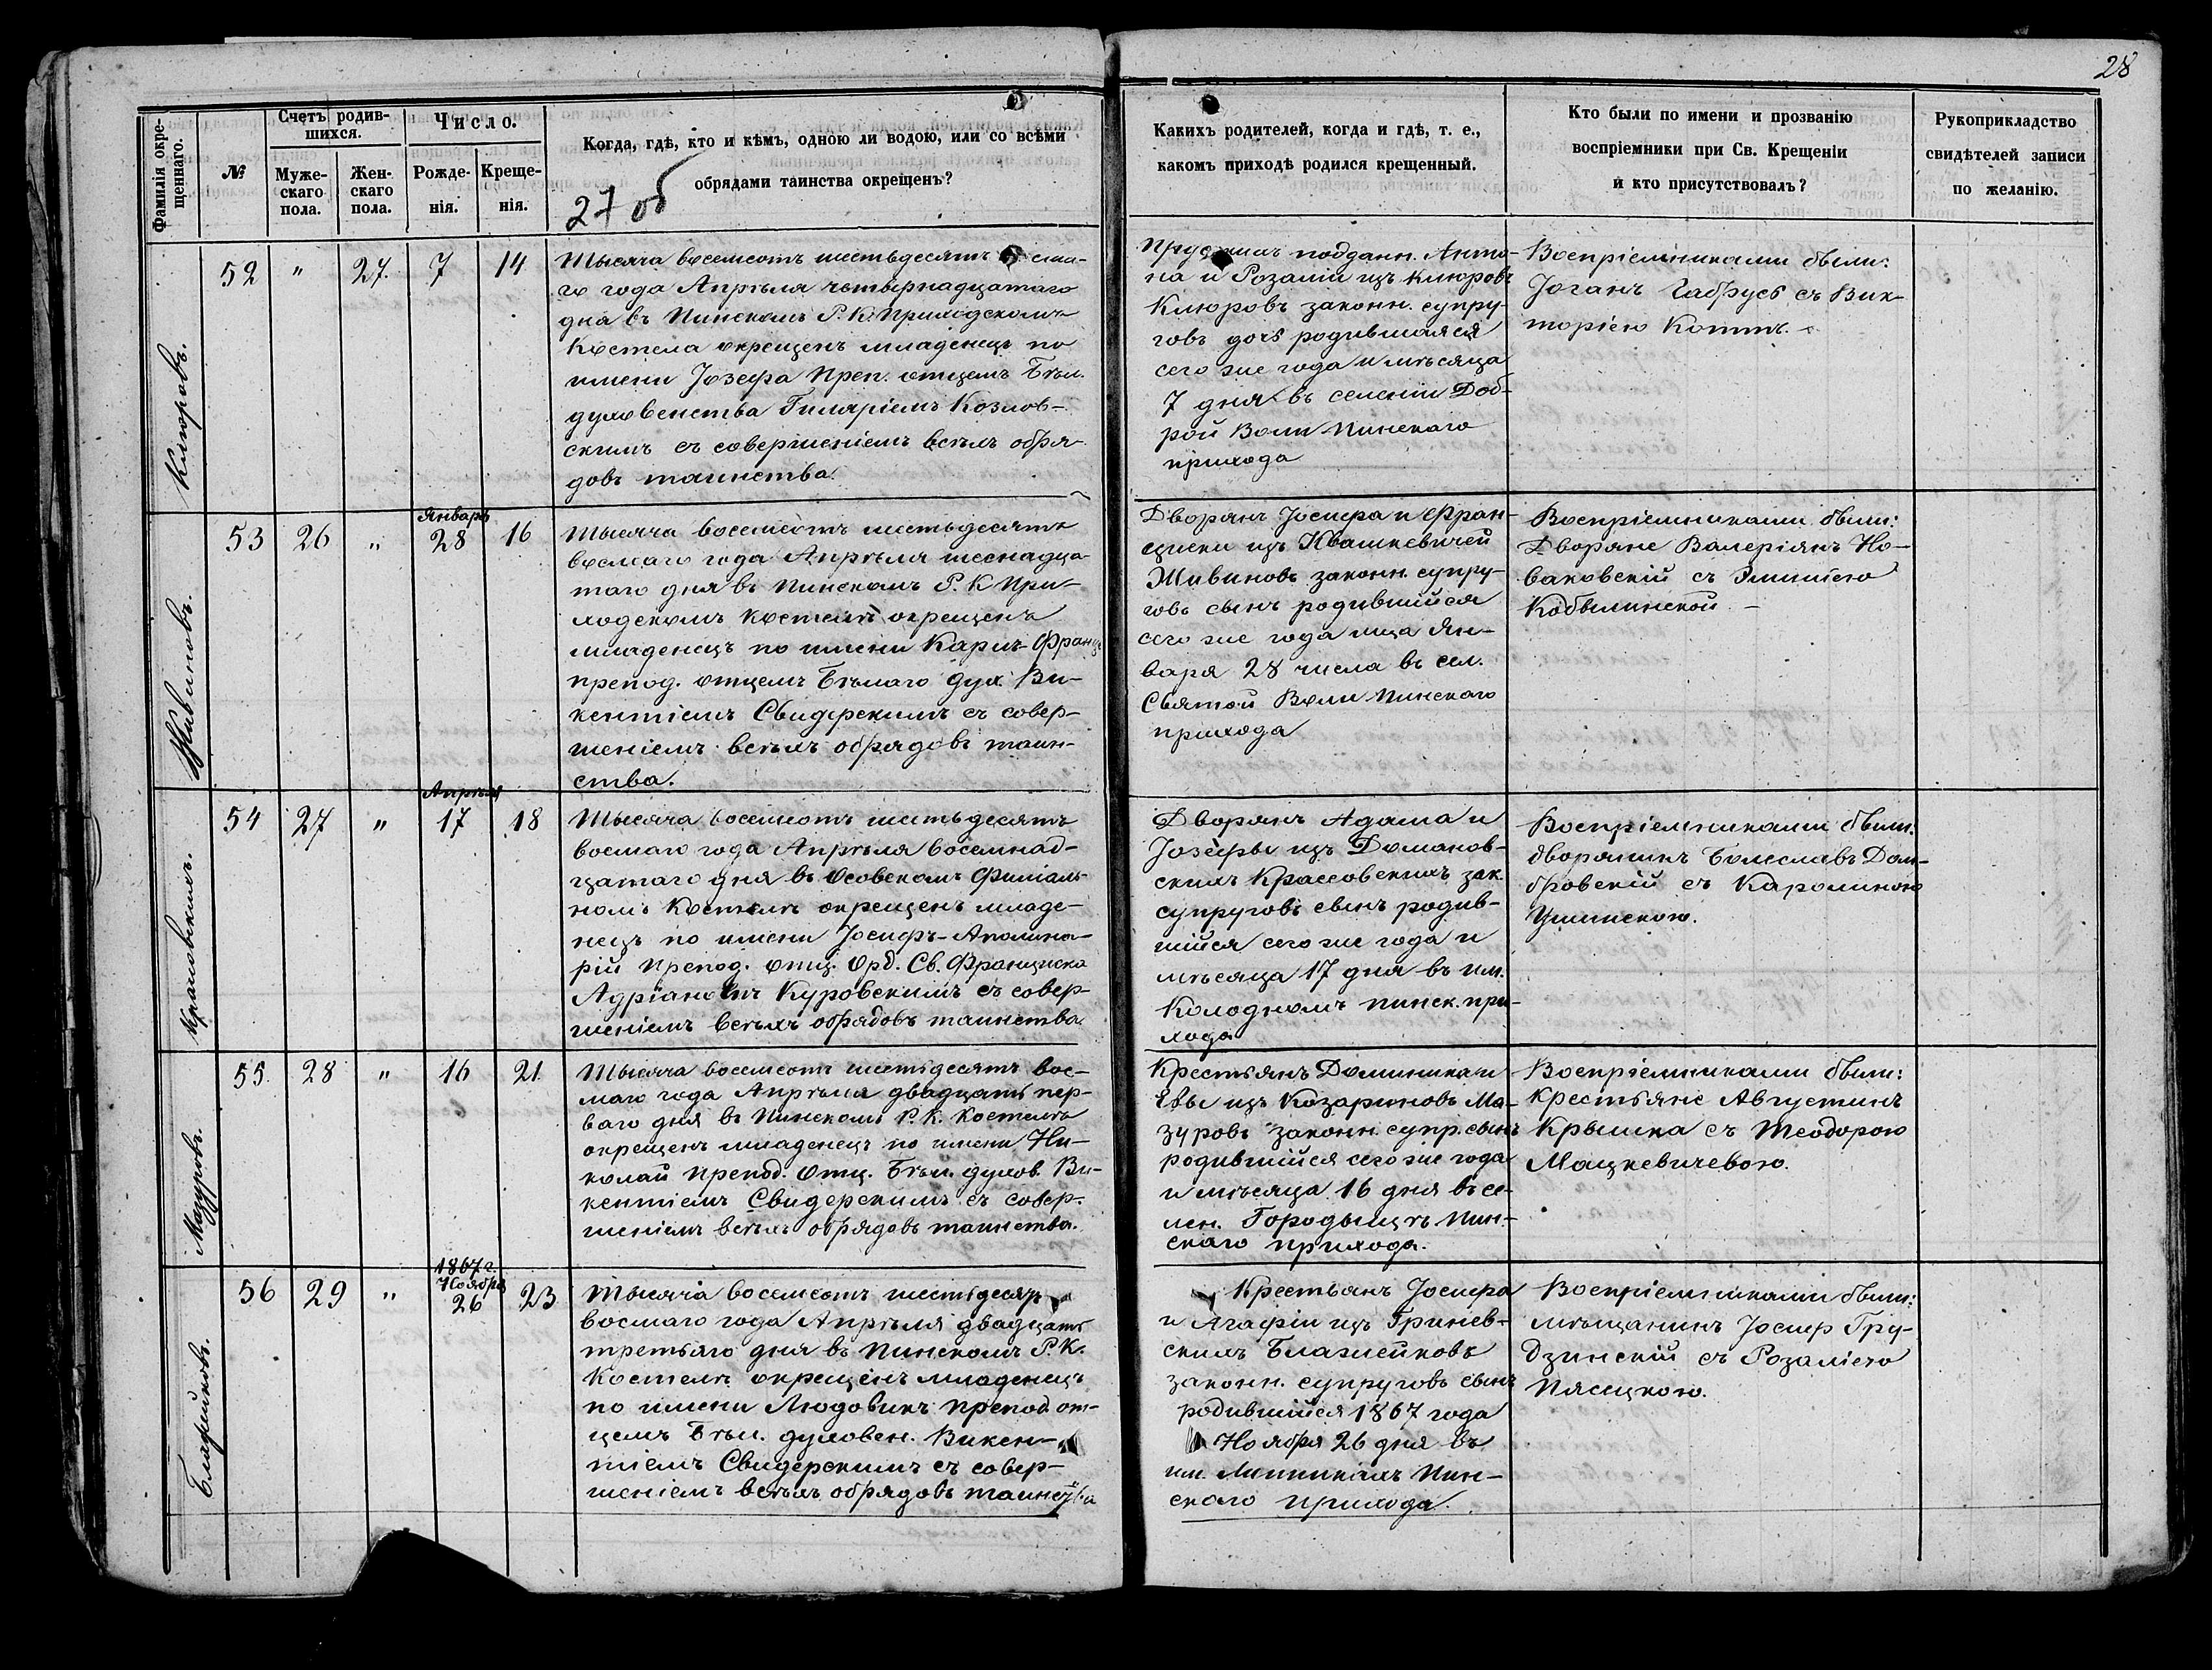 28
Фамилія окре-
щеннаго.
№
Счетъ родив-
шихся.
Муже-
скаго
пола.
Жен-
скаго
пола.
Число.
Рожде-
нія.
Креще-
нія.
Когда, гдѣ, кто и кѣмъ, одною ли водою, или со всѣми
обрядами таинства окрещенъ?
27 об
Какихъ родителей, когда и гдѣ, т. е.,
какомъ приходѣ родился крещенный.
Кто были по имени и прозванію
воспріемники при Св. Крещеніи
и кто присутствовалъ?
Рукоприкладство
свидѣтелей записи
по желанію.
Клюровъ.
52 " 27. 7 14
Тысяча восемсотъ шестьдесятъ
го года Апрѣля четырнадцатаго
дня въ Пинскомъ Р. К. Приходскомъ
Костела окрещенъ младенецъ по
имени Јозефа Преп. отцемъ Бѣл.
духовенства Гиляріемъ Козлов-
скимъ съ совершеніемъ всѣхъ обря-
довъ таинства.
подданн. Анто-
на и Розаліи изъ Клюровъ
Клюровъ законн. супру-
говъ дочь родившаяся
сего же года и мѣсяца
7 дня въ селеніи Доб-
рой Воли Пинскаго
прихода
Воспріемниками были:
Јоганъ Габрусь съ Вик-
торіею Коттъ.
Живиновъ.
53 26 " Январь 28 16
Тысяча восемсотъ шестьдесятъ
восмаго года Апрѣля шеснадца-
таго дня въ Пинскомъ Р. К При-
ходскомъ Костелѣ окрещенъ
младенецъ по имени Карлъ-Францъ
препод. отцемъ Бѣлаго дух. Ви-
кентіемъ Свидерскимъ съ совер-
шеніемъ всѣхъ обрядовъ таин-
ства.
Дворянъ Јосифа и Фран-
циски изъ Квашкевичей
Живиновъ законн. супру-
говъ сынъ родившійся
сего же года мца Ян-
варя 28 числа въ сел.
Святой Воли Пинскаго
прихода
Воспріемниками были:
Дворяне Валеріянъ Но-
ваковскій съ Эмиліею
Кобылинской. -
Красовскихъ.
54 27 " Апрѣля 17 18
Тысяча восемсотъ шестьдесятъ
восмаго года Апрѣля восемнад-
цатаго дня въ Осовскомъ Филіаль-
номъ Костелѣ окрещенъ младе-
нецъ по имени Јосифъ-Аполина-
рій препод. отц. Орд. Св. Франциска
Адріаномъ Куровскимъ съ совер-
шеніемъ всѣхъ обрядовъ таинства.
Дворянъ Адама и
Јозефы изъ Доманов-
скихъ Крассовскихъ зак.
супруговъ сынъ родив-
шійся сего же года и
мѣсяца 17 дня въ им.
Колодномъ пинск. при-
хода
Воспріемниками были:
дворянинъ Болеславъ Дом-
бровскій съ Каролиною
Ушинскою.
Мазуровъ.
55. 28 " 16 21.
Тысяча восемсотъ шестьдесятъ вос-
маго года Апрѣля двадцать пер-
ваго дня въ Пинскомъ Р. К. Костелѣ
окрещенъ младенецъ по имени Ни-
колай препод. Отц. Бѣл. духов. Ви-
кентіемъ Свидерскимъ съ совер-
шеніемъ всѣхъ обрядовъ таинства.
Крестьянъ Доминика и
Евы изъ Козариновъ Ма-
зуровъ законн. супр. сынъ
родившійся сего же года
и мѣсяца 16 дня въ се-
лен. Городыщѣ Пин-
скаго прихода.
Воспріемниками были:
Крестьяне Августинъ
Крышка съ Теодорою
Мацкевичевою.
Блажейковъ.
56 29 " 1867 г. Ноября 26 23
Тысяча восемсотъ шестьдесятъ
восмаго года Апрѣля двадцать
третьяго дня въ Пинскомъ Р. К.
Костелѣ окрещенъ младенецъ
по имени Людовикъ препод. от-
цемъ Бѣл. духовен. Викен-
тіемъ Свидерскимъ съ совер-
шеніемъ всѣхъ обрядовъ таинства
Крестьянъ Јосифа
и Агафіи изъ Гринев-
скихъ Блажейковъ
законн. супруговъ сынъ
родившійся 1867 года
Ноября 26 дня въ
им. Пин-
скаго прихода.
Воспріемниками были:
мѣщанинъ Јосиф Гру-
дзинскій съ Розаліею
Пясецкою.